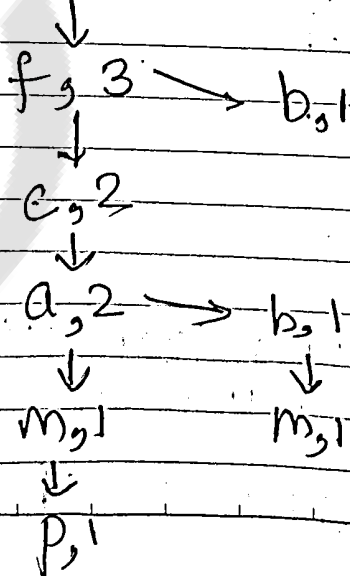 f, 3 b, 1
c, 2
a, 2 b, 1
m, 1 m, 1
p, 1